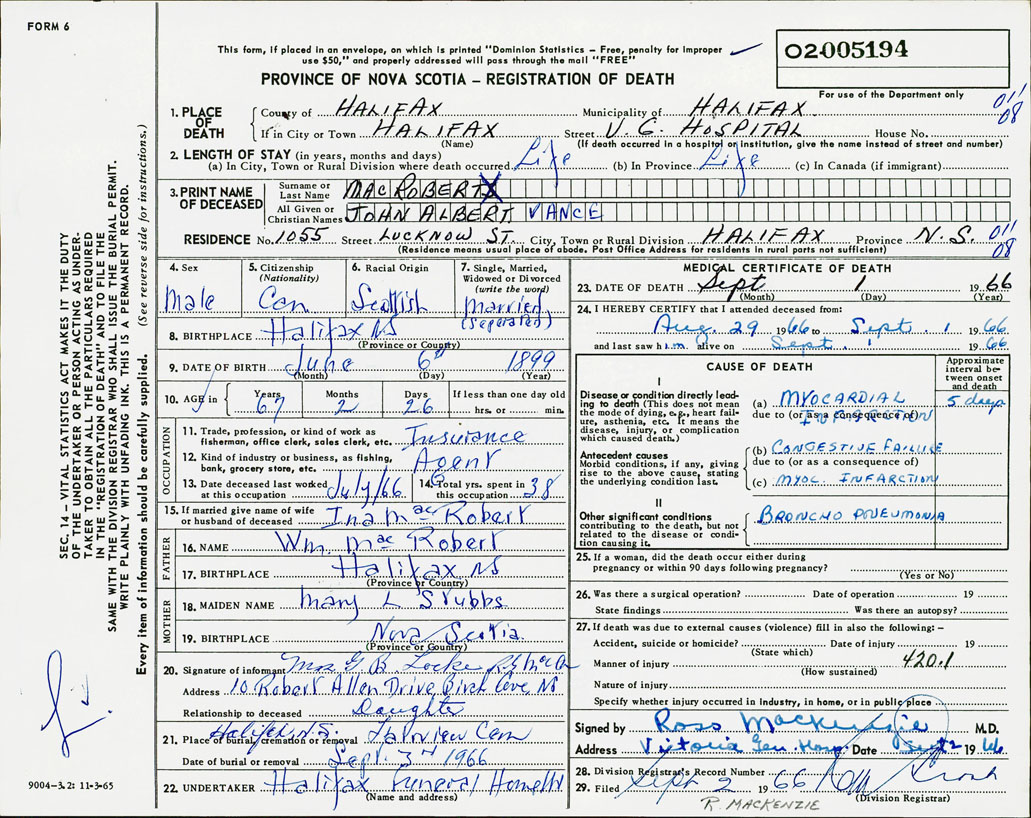 FORM 6
This form, if placed in an envelope, on which is printed "Dominion Statistics – Free, penalty for improper
use $50," and properly addressed will pass through the mail "FREE"
02-005194
PROVINCE OF NOVA SCOTIA – REGISTRATION OF DEATH
For use of the Department only
011
08
1. PLACE OF DEATH
County of HALIFAX Municipality of HALIFAX
If in City or Town HALIFAX Street V. G. HOSPITAL House No.
(Name) (If death occurred in a hospital or institution, give the name instead of street and number)
2. LENGTH OF STAY (in years, months and days)
(a) In City, Town or Rural Division where death occurred Life (b) In Province Life (c) In Canada (if immigrant)
3. PRINT NAME OF DECEASED
Surname or Last Name MACROBERT
All Given or Christian Names JOHN ALBERT VANCE
RESIDENCE No. 1055 Street LUCKNOW ST. City, Town or Rural Division HALIFAX Province N.S.
(Residence means usual place of abode. Post Office Address for residents in rural parts not sufficient)
011
08
4. Sex
Male
5. Citizenship
(Nationality)
Can
6. Racial Origin
Scottish
7. Single, Married,
Widowed or Divorced
(write the word)
Married
(Separated)
8. BIRTHPLACE Halifax NS
(Province or Country)
9. DATE OF BIRTH June 6th 1899
(Month) (Day) (Year)
10. AGE in Years 67 Months 2 Days 26 If less than one day old
hrs. or min.
OCCUPATION
11. Trade, profession, or kind of work as
fisherman, office clerk, sales clerk, etc. Insurance
12. Kind of industry or business, as fishing,
bank, grocery store, etc. Agent
13. Date deceased last worked
at this occupation July/66
14. Total yrs. spent in
this occupation 38
15. If married give name of wife
or husband of deceased Ina MacRobert
FATHER
16. NAME Wm. MacRobert
17. BIRTHPLACE Halifax NS
(Province or Country)
MOTHER
18. MAIDEN NAME Mary L Stubbs
19. BIRTHPLACE Nova Scotia
(Province or Country)
20. Signature of informant Mrs G. B. Locke
Address 10 Robert Allen Drive, Birch Cove NS
Relationship to deceased Daughter
21. Place of burial, cremation or removal Halifax N.S. Fairview Cem
Date of burial or removal Sept. 3rd 1966
22. UNDERTAKER Halifax Funeral Home
(Name and address)
MEDICAL CERTIFICATE OF DEATH
23. DATE OF DEATH Sept 1 1966
(Month) (Day) (Year)
24. I HEREBY CERTIFY that I attended deceased from:
Aug. 29 1966 to Sept. 1 1966
and last saw him alive on Sept. 1 1966
CAUSE OF DEATH
Approximate
interval be-
tween onset
and death
I
Disease or condition directly lead-
ing to death (This does not mean
the mode of dying, e.g., heart fail-
ure, asthenia, etc. It means the
disease, injury, or complication
which caused death.)
(a) MYOCARDIAL INFARCTION 5 days
due to (or as a consequence of)
Antecedent causes
Morbid conditions, if any, giving
rise to the above cause, stating
the underlying condition last.
(b) CONGESTIVE FAILURE
due to (or as a consequence of)
(c) MYOC. INFARCTION
II
Other significant conditions
contributing to the death, but not
related to the disease or condi-
tion causing it.
BRONCHO PNEUMONIA
25. If a woman, did the death occur either during
pregnancy or within 90 days following pregnancy?
(Yes or No)
26. Was there a surgical operation? Date of operation 19
State findings Was there an autopsy?
27. If death was due to external causes (violence) fill in also the following: –
Accident, suicide or homicide? Date of injury 19
(State which)
Manner of injury 420.1
(How sustained)
Nature of injury
Specify whether injury occurred in industry, in home, or in public place
Signed by Ross Mackenzie M.D.
Address Victoria Gen. Hosp. Date Sept 2 1966
28. Division Registrar's Record Number
29. Filed Sept 2 1966
(Division Registrar)
R. MACKENZIE
SEC. 14 – VITAL STATISTICS ACT MAKES IT THE DUTY
OF THE UNDERTAKER OR PERSON ACTING AS UNDER-
TAKER TO OBTAIN ALL THE PARTICULARS REQUIRED
IN THE "REGISTRATION OF DEATH" AND TO FILE THE
SAME WITH THE DIVISION REGISTRAR WHO SHALL ISSUE THE BURIAL PERMIT.
WRITE PLAINLY WITH UNFADING INK. THIS IS A PERMANENT RECORD.
Every item of information should be carefully supplied. (See reverse side for instructions.)
9004–3.2: 11-3-65